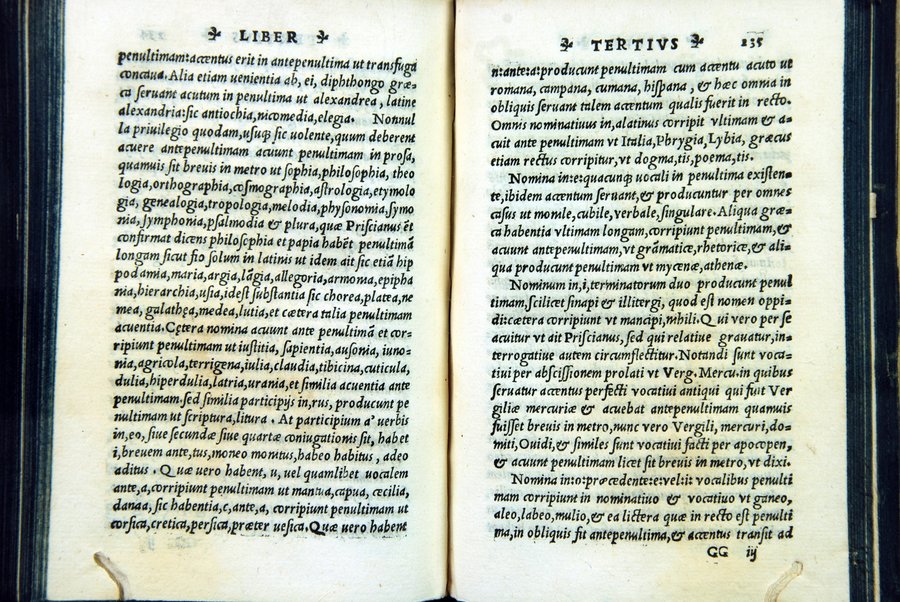 LIBER
penultimam: accentus erit in antepenultima ut transfuga
concaua. Alia etiam uenientia ab, ei, diphthongo græ-
ca seruant acutum in penultima ut alexandrea, latine
alexandria: sic antiochia, nicomedia, elegia. Nonnul
la priuilegio quodam, usuq; sic uolente, quum deberent
acuere antepenultimam acuunt penultimam in prosa,
quamuis sit breuis in metro ut sophia, philosophia, theo
logia, orthographia, cosmographia, astrologia, etymolo
gia, genealogia, tropologia, melodia, physonomia, symo
nia, symphonia, psalmodia & plura, quæ Priscianus ēt
confirmat dicens philosophia et papia habēt penultimā
longam sicut fio solum in latinis ut idem ait sic etiā hip
podamia, maria, argia, lāgia, allegoria, armonia, epipha
nia, hierarchia, usia, idest substantia sic chorea, platea, ne
mea, galathęa, medea, lutia, et cætera talia penultimam
acuentia. Cętera nomina acuunt ante penultimā et cor-
ripiunt penultimam ut iustitia, sapientia, ausonia, iuno-
nia, agricola, terrigena, iulia, claudia, tibicina, cuticula,
dulia, hiperdulia, latria, urania, et similia acuentia ante
penultimam. sed similia participijs in, rus, producunt pe
nultimam ut scriptura, litura. At participium a' uerbis
in, eo, siue secundæ siue quartæ coniugationis sit, habet
i, breuem ante, tus, moneo monitus, habeo habitus, adeo
aditus. Quæ uero habent, u, uel quamlibet uocalem
ante, a, corripiunt penultimam ut mantua, capua, cæcilia,
danaa, sic habentia, c, ante, a, corripiunt penultimam ut
corsica, cretica, persica, præter uesica. Quæ uero habent
TERTIVS 235
n: ante: a: producunt penultimam cum accentu acuto ut
romana, campana, cumana, hispana, & hæc omnia in
obliquis seruant talem accentum qualis fuerit in recto.
Omnis nominatiuus in, a latinus corripit vltimam & a-
cuit ante penultimam vt Italia, Phrygia, Lybia, græcus
etiam rectus corripitur, vt dogma, tis, poema, tis.
Nomina in: e: quacunq; uocali in penultima existen-
te, ibidem accentum seruant, & producuntur per omnes
casus ut monile, cubile, verbale, singulare. Aliqua græ-
ca habentia vltimam longam, corripiunt penultimam, &
acuunt antepenultimam, vt grāmaticæ, rhetoricæ, & ali-
qua producunt penultimam vt mycenæ, athenæ.
Nominum in, i, terminatorum duo producunt penul
timam, scilicet sinapi & illitergi, quod est nomen oppi-
di: cætera corripiunt vt mancipi, nihili. Qui vero per se
acuitur vt ait Priscianus, sed qui relatiue grauatur, in-
terrogatiue autem circumflectitur. Notandi sunt voca-
tiui per abscissionem prolati vt Verg. Mercu. in quibus
seruatur accentus perfecti vocatiui antiqui qui fuit Ver
giliæ mercuriæ & acuebat antepenultimam quamuis
fuisset breuis in metro, nunc vero Vergili, mercuri, do-
miti, Ouidi, & similes sunt vocatiui facti per apocopen,
& acuunt penultimam licet sit breuis in metro, vt dixi.
Nomina in: o: præcedente: e: vel: i: vocalibus penulti
mam corripiunt in nominatiuo & vocatiuo vt ganeo,
aleo, labeo, mulio, & ea lictera quæ in recto est penulti
ma, in obliquis fit antepenultima, & accentus transit ad
GG iij